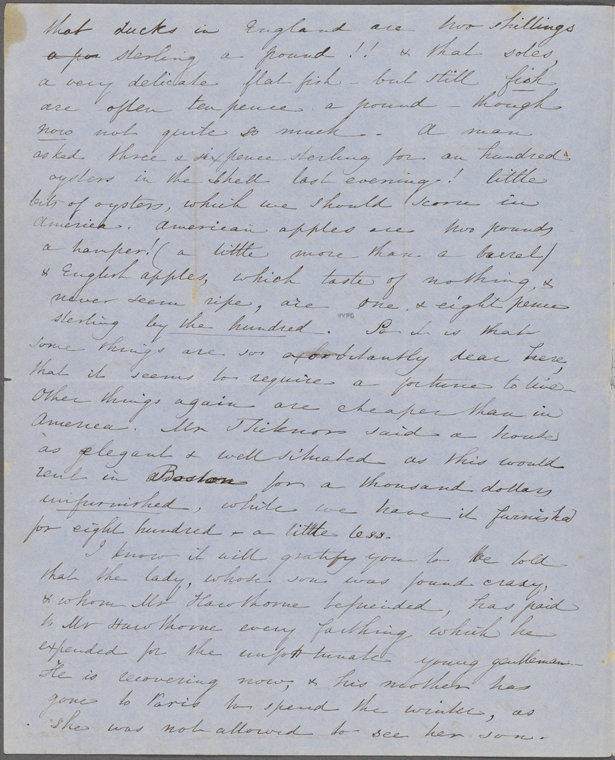 that ducks in England are two shillings
sterling a pound!! & that soles,
a very delicate flat fish - but still fish
are often ten pence a pound - though
now not quite so much - A man
asked three & sixpence sterling for an hundred
oysters in the shell last evening! little
bits of oysters, which we should scorn in
America. American apples are two pounds
a hamper! (a little more than a barrel)
& English apples, which taste of nothing, &
never seem ripe, are one & eight pence
sterling by the hundred. So it is that
some things are so exorbitantly dear here,
that it seems to require a fortune to live -
Other things again are cheaper than in
America. Mr Ticknor said a house
as elegant & well situated as this would
rent in Boston for a thousand dollars
unfurnished, while we have it furnished
for eight hundred & a little less.
I know it will gratify you to be told
that the lady, whose son was found crazy,
& whom Mr Hawthorne befriended, has paid
to Mr Hawthorne every farthing which he
expended for the unfortunate young gentleman -
He is recovering now, & his mother has
gone to Paris to spend the winter, as
she was not allowed to see her son.